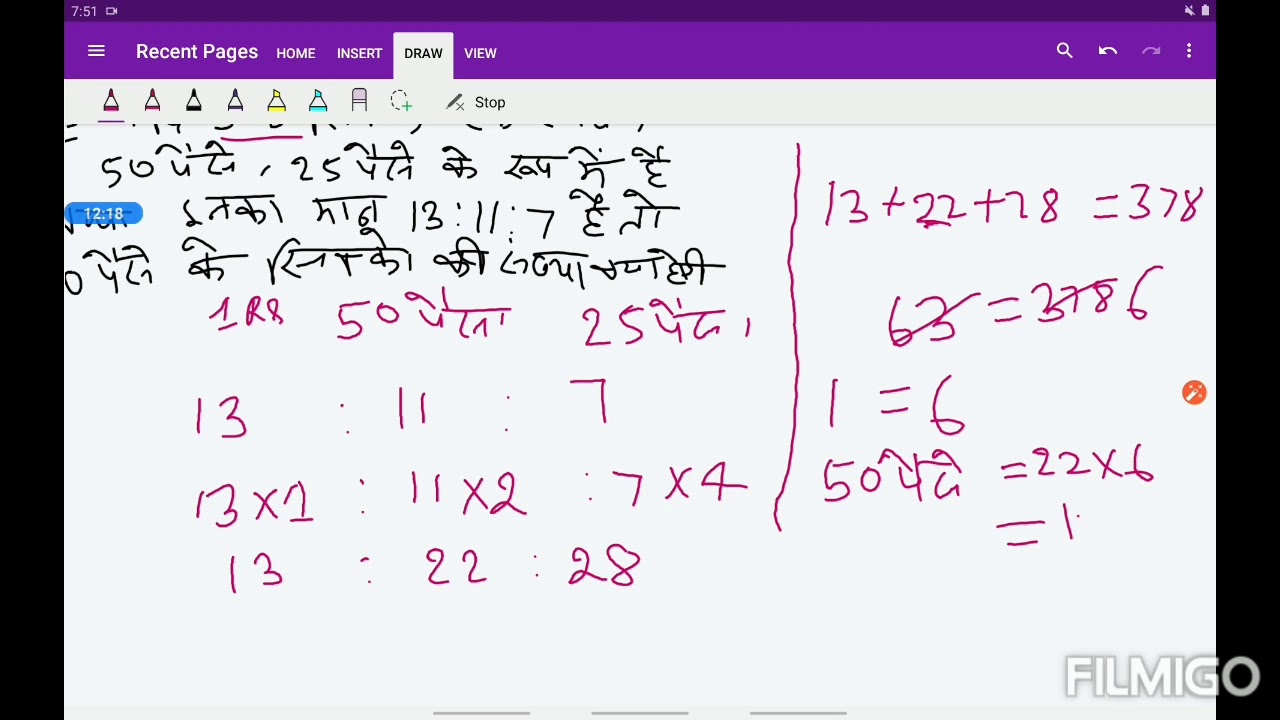 7:51
Recent Pages HOME INSERT DRAW VIEW
Stop
50 पैसे, 25 पैसे के रूप में है
12:18
इनका मान 13:11:7 है तो
0 पैसे के सिक्को की संख्या क्या होगी
1 RS 50 पैसा 25 पैसा,
13 : 11 : 7
13×1 : 11×2 : 7×4
13 : 22 : 28
13+22+28 =378
63 = 378 6
1 = 6
50 पैसे =22×6
= 1
FILMIGO